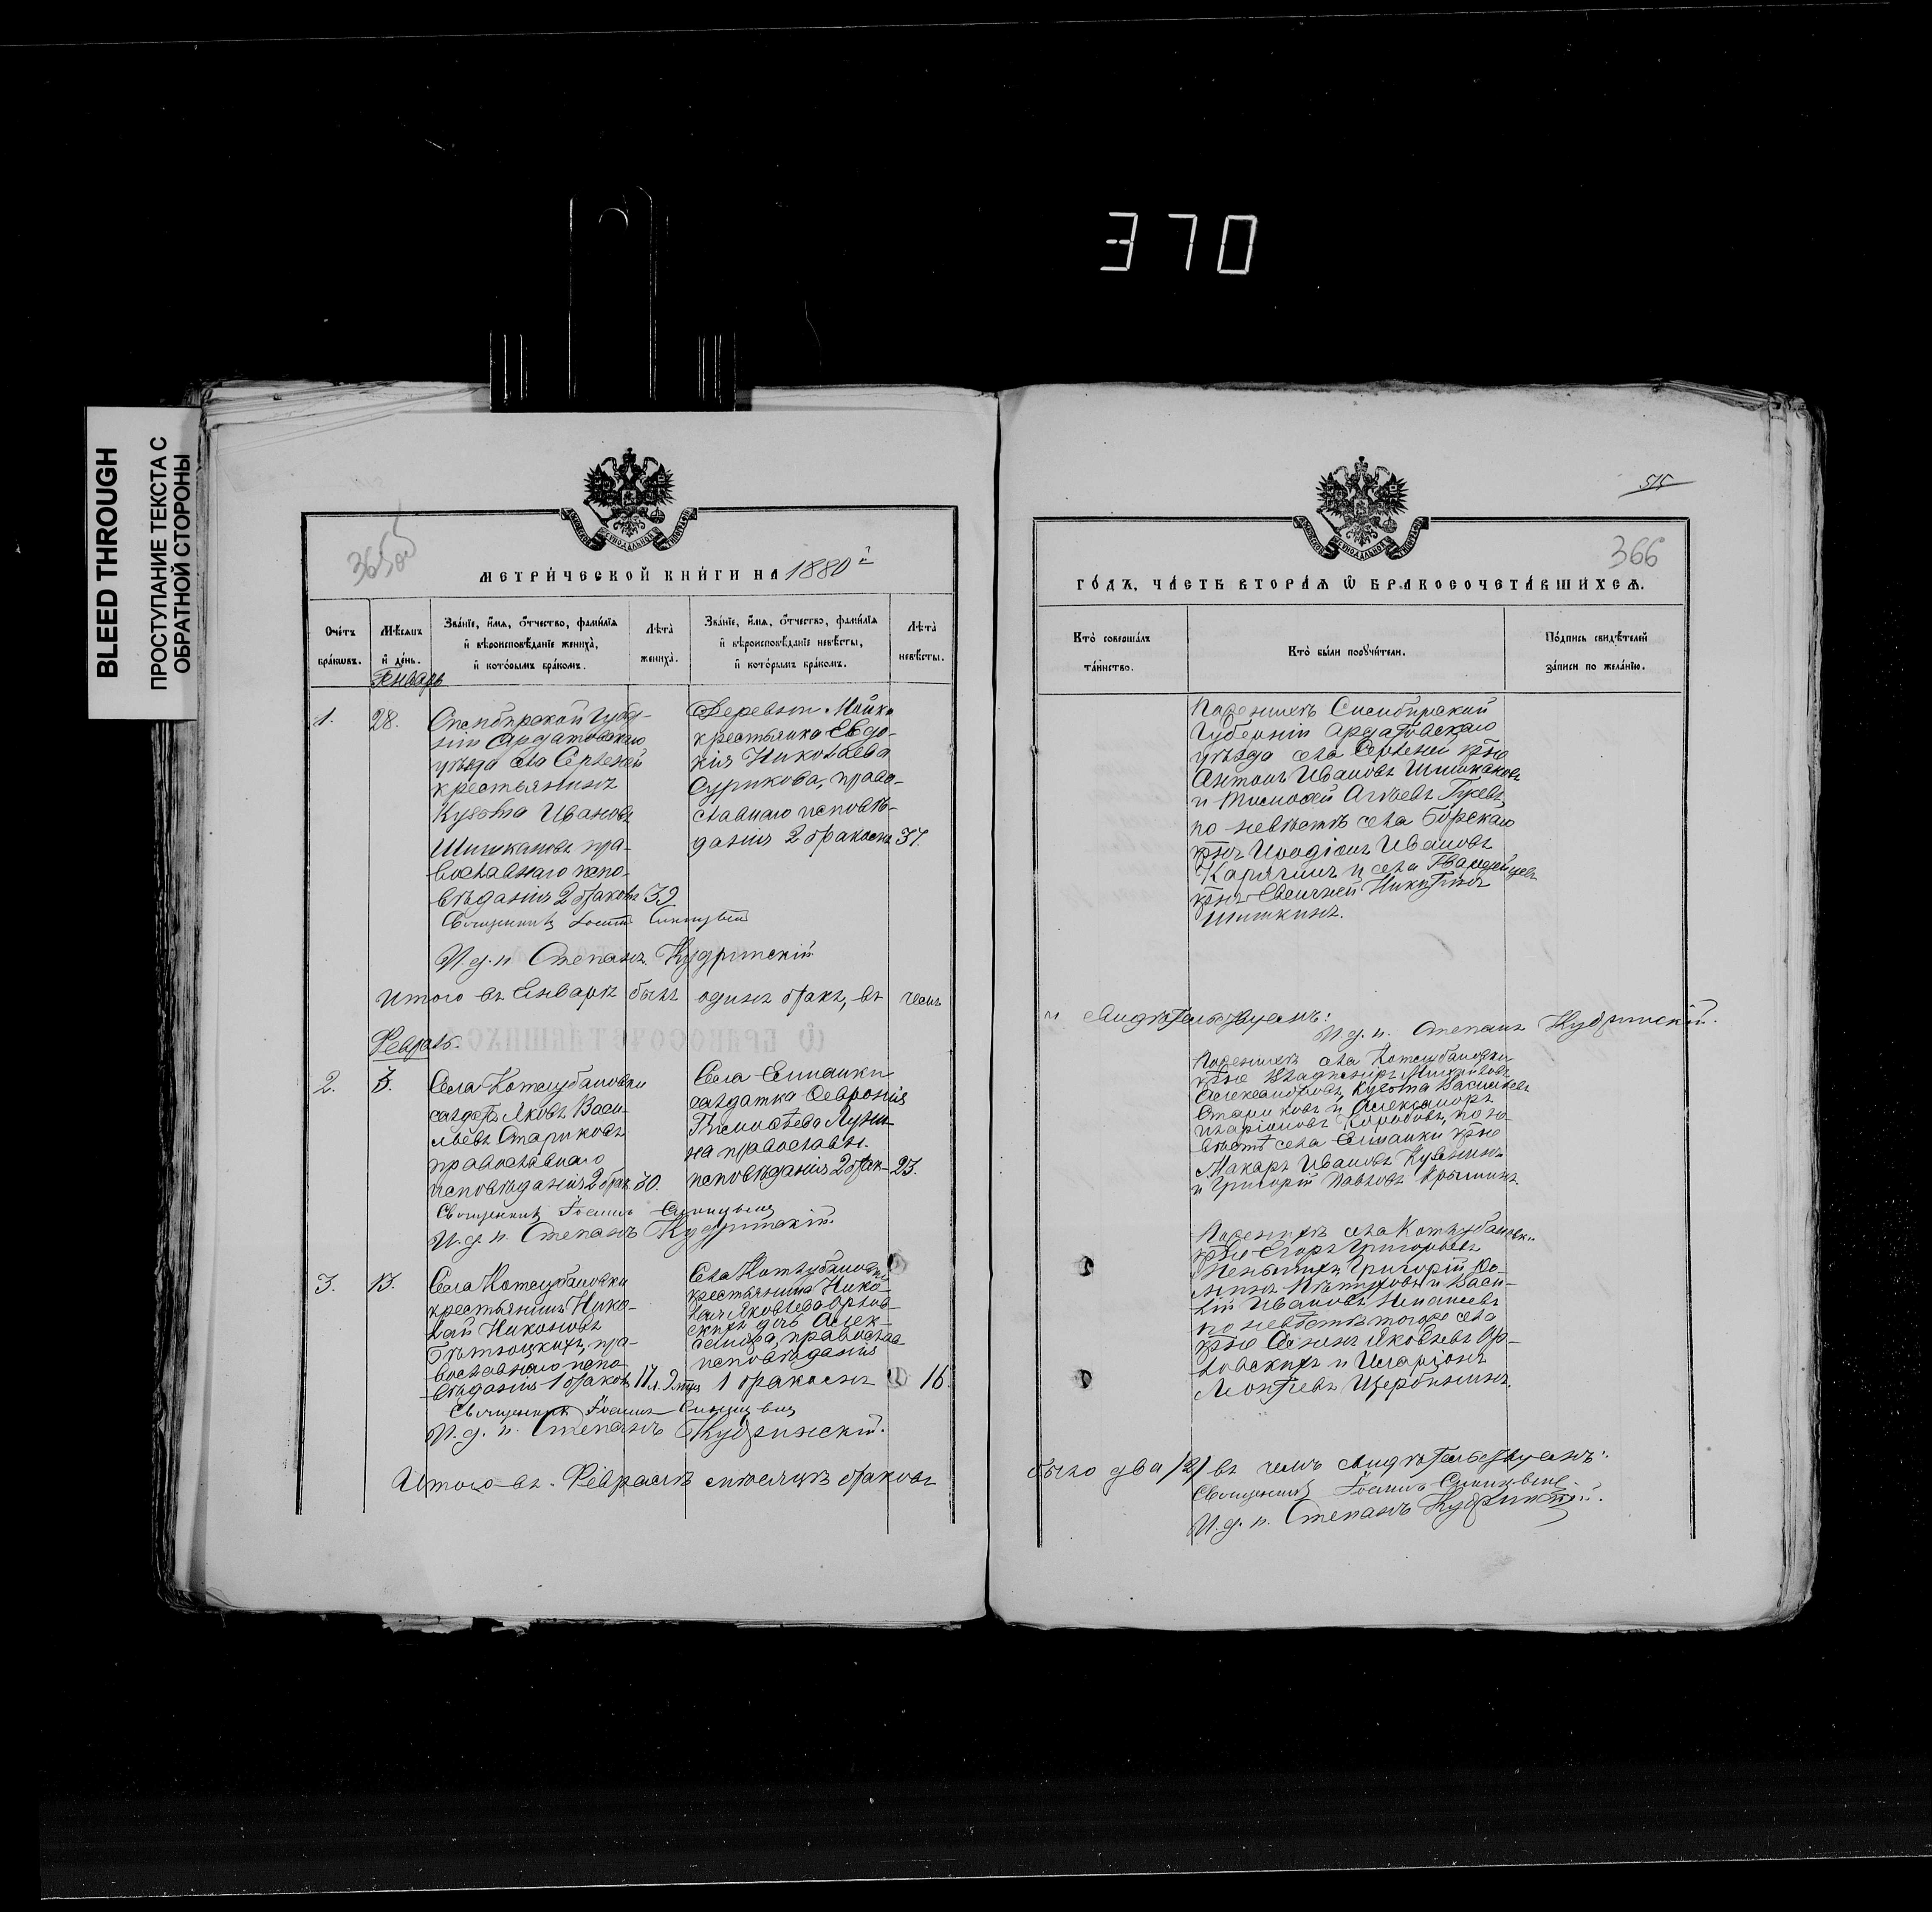 370
BLEED THROUGH
ПРОСТУПАНИЕ ТЕКСТА С
ОБРАТНОЙ СТОРОНЫ
365об
МЕТРИ́ЧЕСКОЙ КНИ́ГИ НА 1880й
Оче́тъ бра́кѡвъ.
Мѣ́сяцъ и҆ де́нь.
Зва́нїе, и҆́мѧ, ѻ҆́тчество, фами́лїѧ
и҆ вѣроисповѣ́данїе жениха̀,
и҆ кото́рымъ бра́комъ.
Лѣта̀ жениха̀.
Зва́нїе, и҆́мѧ, ѻ҆́тчество, фами́лїѧ
и҆ вѣроисповѣ́данїе невѣ́сты,
и҆ кото́рымъ бра́комъ.
Лѣта̀ невѣ́сты.
Январь
1. 28.
Симбирской Губер-
ніи Ардатовскаго
уѣзда села
крестьянинъ
Кузьма Ивановъ
Шишкановъ пра-
вославнаго испо-
вѣданія 2 бракомъ 39
Деревни Мойки
крестьянка Евдо-
кія Николаева
Сурикова, право-
славнаго исповѣ-
данія 2 бракомъ 37.
Священникъ Іоаннъ
И. д. п. Степанъ Кудринскій
Итого въ Январѣ былъ одинъ бракъ, въ чемъ
Февраль.
2. 3.
Села Котлубановки
солдатъ Яковъ Васи-
льевъ Стариковъ
православнаго
исповѣданія 2 брак 30.
Села Елшанки
солдатка Февронія
Тимоѳеева Лузи-
на православн.
исповѣданія 2 брак- 23.
Священникъ Іоаннъ
И. д. п. Степанъ Кудринскій.
3. 13.
Села Котлубановки
крестьянинъ Нико-
лай Никоновъ
пра-
вославнаго испо-
вѣданія 1 бракомъ 17 л. 9 мцъ
Села Котлубановки
крестьянина Нико-
лая Яковлева Орлов-
скихъ дочь Алек-
сандра, православ-
исповѣданія
1 бракомъ 16.
Священникъ Іоаннъ
И. д. п. Степанъ Кудринскій.
Итого въ Февралѣ мѣсяцѣ браковъ
515
366
ГО́ДЪ, ЧА́СТЬ ВТОРА́Ѧ Ѽ БРАКОСОЧЕТА́ВШИХСѦ.
Кто̀ соверша́лъ
та́инство.
Кто̀ бы́ли порꙋчи́тели.
По́дпись свидѣ́телей
за́писи по жела́нїю.
По женихѣ Симбирской
Губерніи Ардатовскаго
уѣзда села крѣ
Антонъ Ивановъ Шишкановъ
и Тимоѳей Гусевъ,
по невѣстѣ села Борскаго
крнъ Иродіонъ Ивановъ
Карягинъ и села Гвардейцевъ
крнъ Евсигней Никитинъ
Шишкинъ.
и Свидѣтельствуемъ:
И. д. п. Степанъ Кудринскій.
По женихѣ села Котлубановки
крѣ Владиміръ Михайловъ
Александровъ, Кузьма Васильевъ
Стариковъ и Александръ
Иларіоновъ Коробовъ, по не-
вѣстѣ села Елшанки крѣ
Макаръ Ивановъ Кузминъ
и Григорій Павловъ
По женихѣ села Котлубановки
крѣ Егоръ Григорьевъ
Григорій Ѳо-
и Васи-
лій Ивановъ
по невѣстѣ того же села
крѣ Яковлевъ Ор-
ловскихъ и Иларіонъ
Леонтьевъ Щербининъ.
было два /2/ въ чемъ Свидѣтельствуемъ:
Священникъ Іоаннъ
И. д. п. Степанъ Кудринскій.